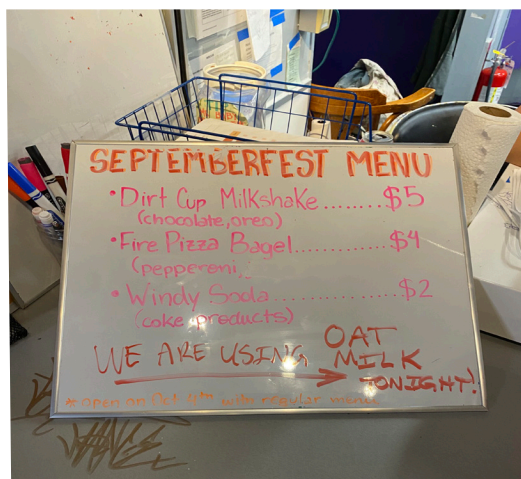 SEPTEMBERFEST MENU
• Dirt Cup Milkshake........$5
(chocolate, oreo)
• Fire Pizza Bagel..............$4
(pepperoni,
• Windy Soda..................$2
(coke products)
WE ARE USING OAT
MILK
TONIGHT!
* open on Oct 4th with regular menu